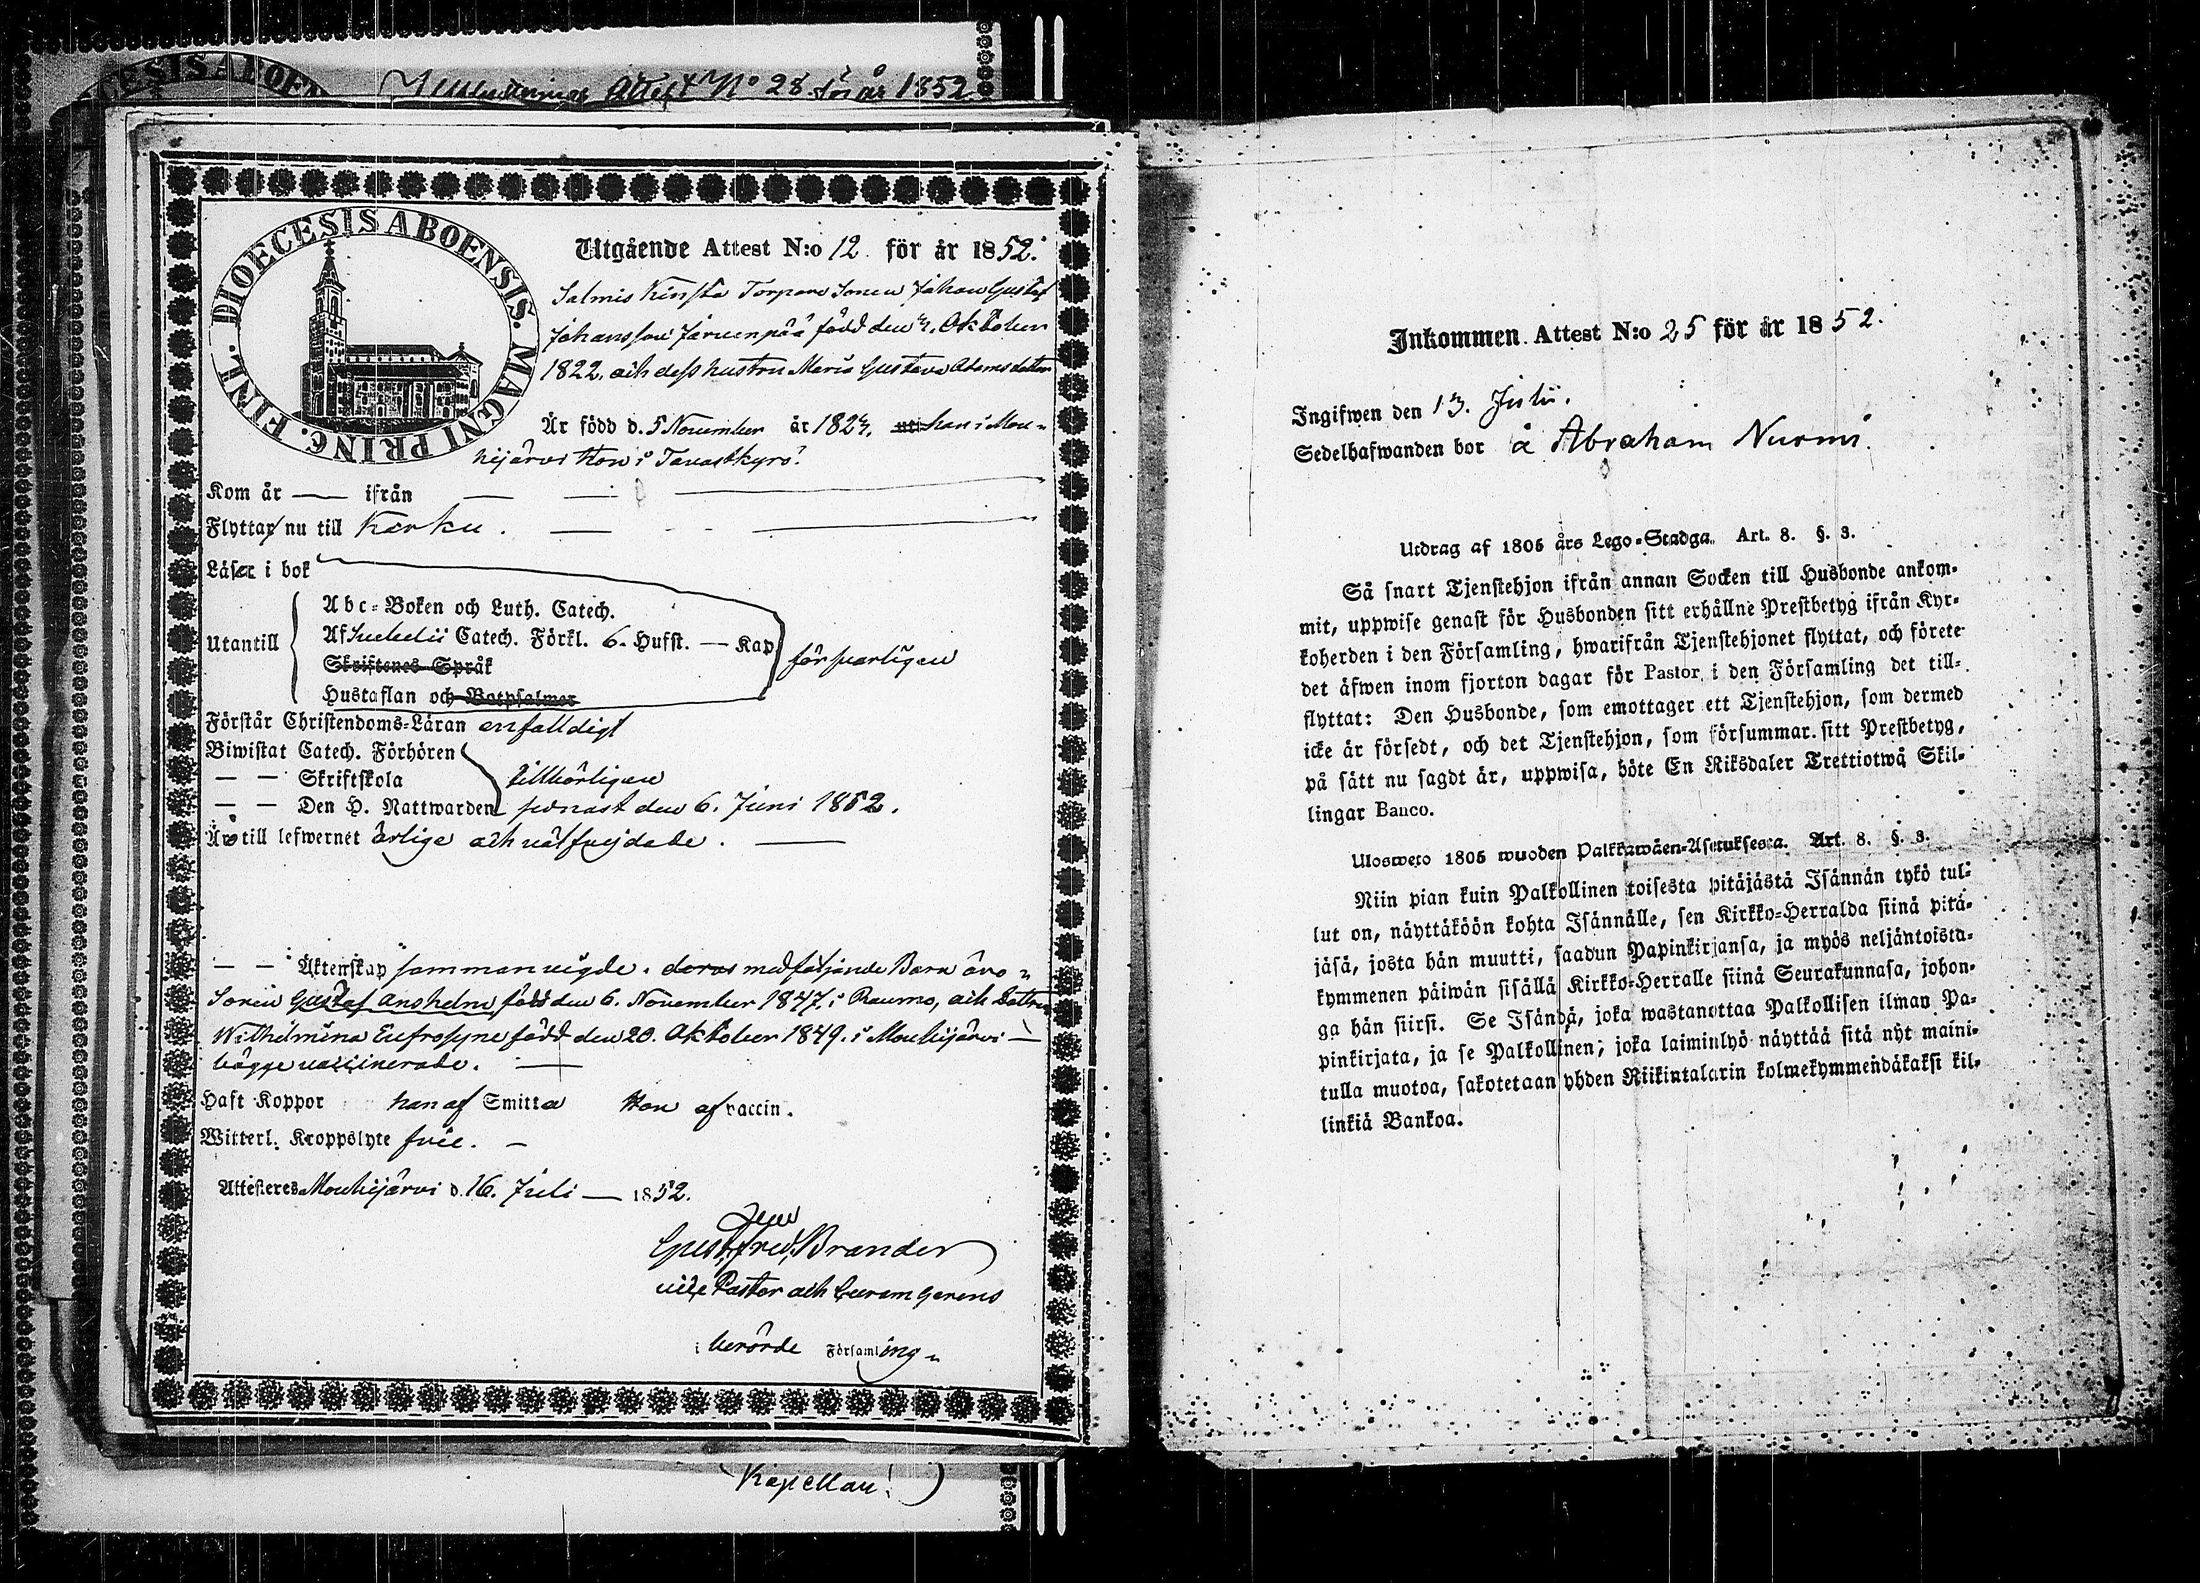 CESIS ABOEN
Attest No 28 för år 1852
DIOECESIS ABOENSIS. MAGNI PRINC. FINL.
Utgående Attest N:o 12 för år 1852.
Salmis Kinsta Torpare Sonen Johan Gustaf
Johansson Järvenpää född den 2. Oktober
1822. och dess hustru Maria Gustava Adamsdotter
Är född d. 5 November år 1824. uti han i Mou-
hijärvi Hon i Tavastkyro.
Kom år — ifrån — — —
Flyttar nu till Karku. — —
Läser i bok
Utantill
Abc-Boken och Luth. Catech.
Af Svebelii Catech. Förkl. 6. Hufst. — Kap.
Skriftenes Språk
Hustaflan och Botpsalmer
försvarligen
Förstår Christendoms-Läran enfaldigt
Biwistat Catech. Förhören
— — Skriftskola tillbörligen
— — Den H. Nattwarden senast den 6. Juni 1852.
Äro till lefwernet ärlige och välfrejdade. —
— — Äktenskap sammanvigde. deras medföljande Barn äro "
Sonen Gustaf Anshelm född den 6. November 1847. i Raumo, och Dottren
Wilhelmina Eufrosyne född den 20. Oktober 1849. i Mouhijärvi —
bägge vaccinerade. —
Haft Koppor han af Smitta Hon af vaccin.
Witterl. Kroppslyte frie. —
Attesteres Mouhijärvi d. 16. Juli — 1852.
Gust. Fred. Brander
vice Pastor och Curam gerens
i berörde Församling "
Kapellan!
Inkommen Attest N:o 25 för år 1852.
Ingifwen den 13. Julii.
Sedelhafwanden bor å Abraham Nurmi.
Utdrag af 1805 års Lego-Stadga. Art. 8. §. 3.
Så snart Tjenstehjon ifrån annan Socken till Husbonde ankom-
mit, uppwise genast för Husbonden sitt erhållne Prestbetyg ifrån Kyr-
koherden i den Församling, hwarifrån Tjenstehjonet flyttat, och förete
det äfwen inom fjorton dagar för Pastor i den Församling det till-
flyttat: Den Husbonde, som emottager ett Tjenstehjon, som dermed
icke är försedt, och det Tjenstehjon, som försummar sitt Prestbetyg,
på sätt nu sagdt är, uppwisa, böte En Riksdaler Trettiotwå Skil-
lingar Banco.
Ulosweto 1805 wuoden Palkkawäen-Asetuksesta. Art. 8. §. 3.
Niin pian kuin Palkollinen toisesta pitäjästä Isännän tykö tul-
lut on, näyttäköön kohta Isännälle, sen Kirkko-Herralda siinä pitä-
jäsä, josta hän muutti, saadun Papinkirjansa, ja myös neljäntoista-
kymmenen päiwän sisällä Kirkko-Herralle siinä Seurakunnasa, johon-
ga hän siirsi. Se Isändä, joka wastanottaa Palkollisen ilman Pa-
pinkirjata, ja se Palkollinen, joka laiminlyö näyttää sitä nyt maini-
tulla muotoa, sakotetaan yhden Riikintalarin kolmekymmendäkaksi kil-
linkiä Bankoa.